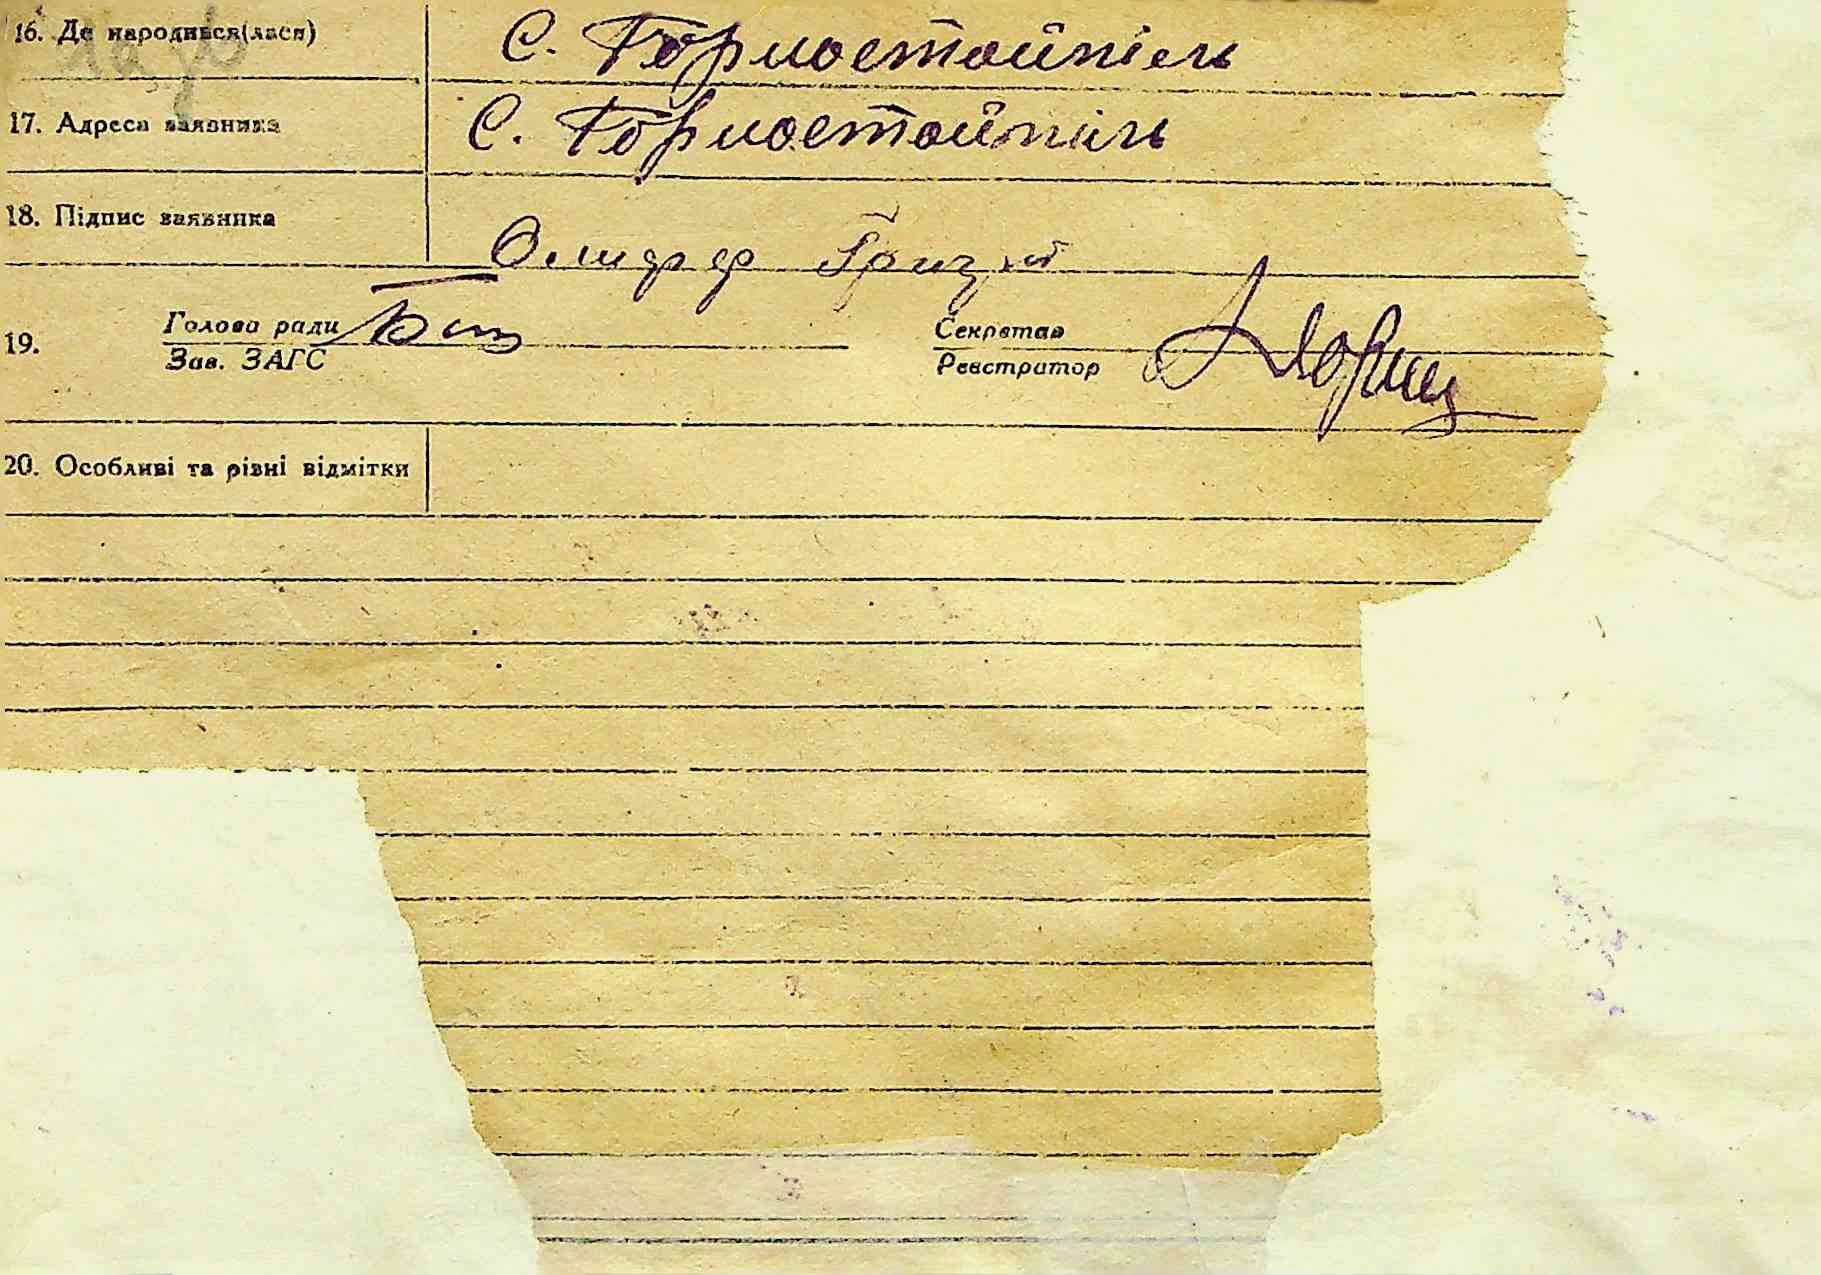 16. Де народився(лася) С. Гормостайпіль
17. Адреса заявника С. Гормостайпіль
18. Підпис заявника Олифер Грицко
19. Голова ради Секретар
Зав. ЗАГС Реєстратор
20. Особливі та різні відмітки